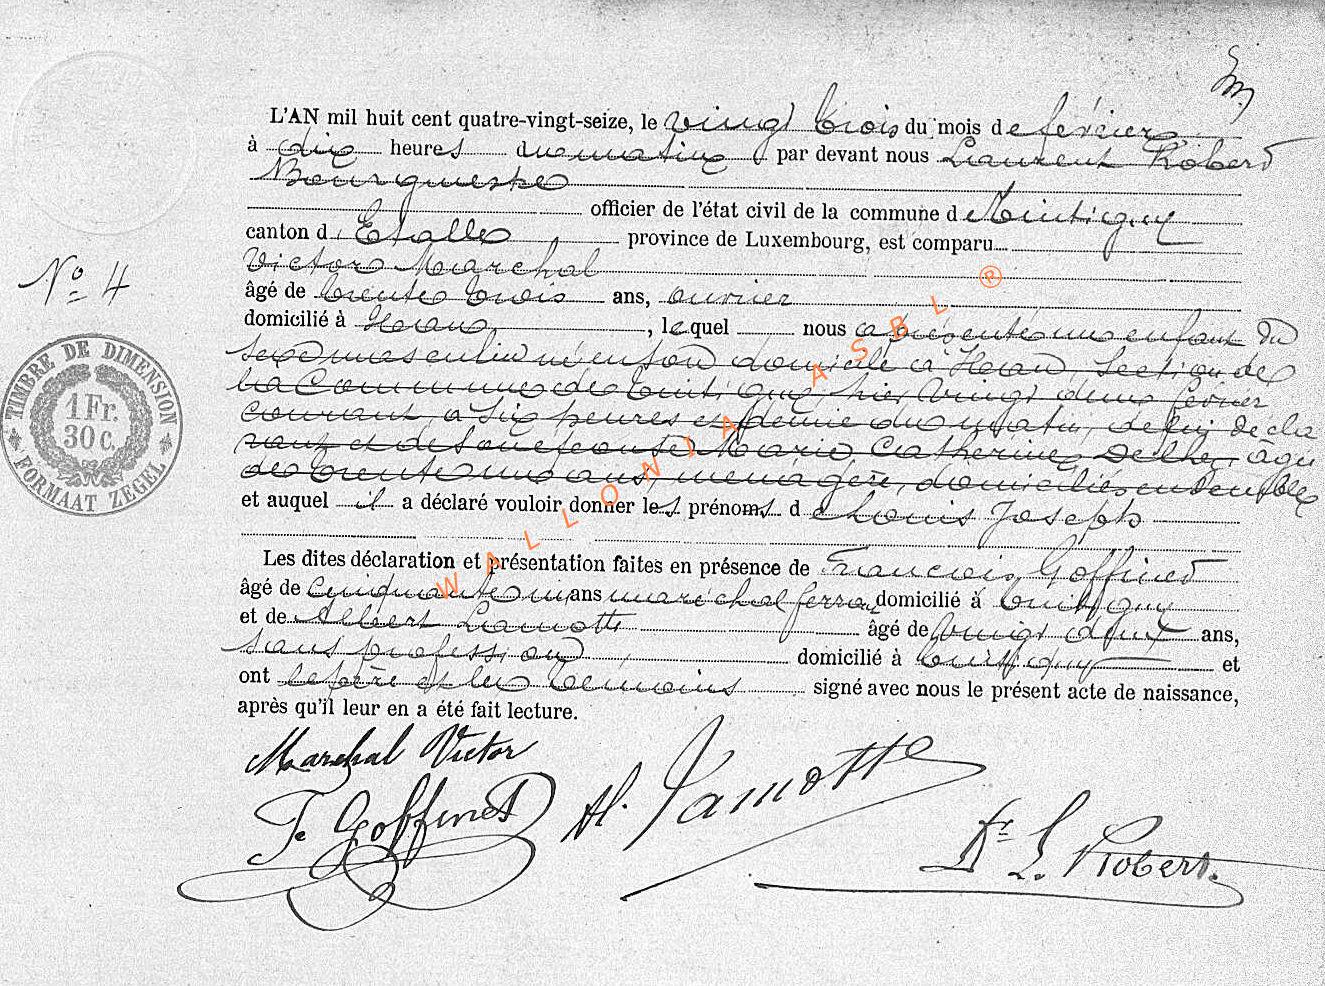 L'AN mil huit cent quatre-vingt-seize, le vingt trois du mois de février
à dix heures du matin par devant nous Laurent Robert
Bourgmestre
officier de l'état civil de la commune d
canton d Etalle, province de Luxembourg, est comparu
Victor Marchal
N° 4
âgé de trente trois ans, ouvrier
domicilié à, lequel nous a présenté un enfant du
sexe masculin né en son domicile à section de
la Commune de hier vingt deux février
courant à six heures et demie du matin, de lui décla
rant et de son épouse Marie Catherine âgée
de trente un ans, ménagère, domiciliés ensemble
et auquel il a déclaré vouloir donner les prénoms de Louis Joseph
Les dites déclaration et présentation faites en présence de François Goffinet
âgé de cinquante ans maréchal ferrant domicilié à
et de Albert Lamotte âgé de vingt deux ans,
sans profession, domicilié à et
ont le père et les témoins signé avec nous le présent acte de naissance,
après qu'il leur en a été fait lecture.
Marchal Victor
F. Goffinet Al. Lamotte
Dr L. Robert.
TIMBRE DE DIMENSION
1 Fr.
30 C.
FORMAAT ZEGEL
WALLONIA ASBL ®